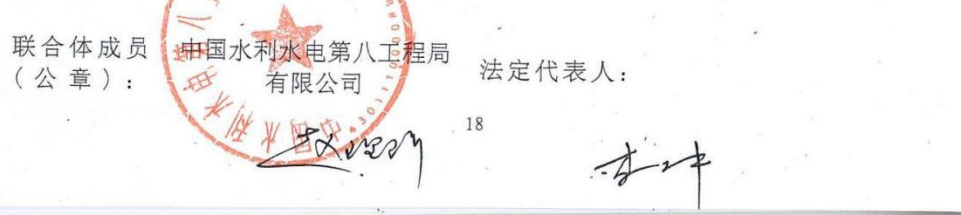 联合体成员
（公章）：
中国水利水电第八工程局
有限公司
法定代表人：
18